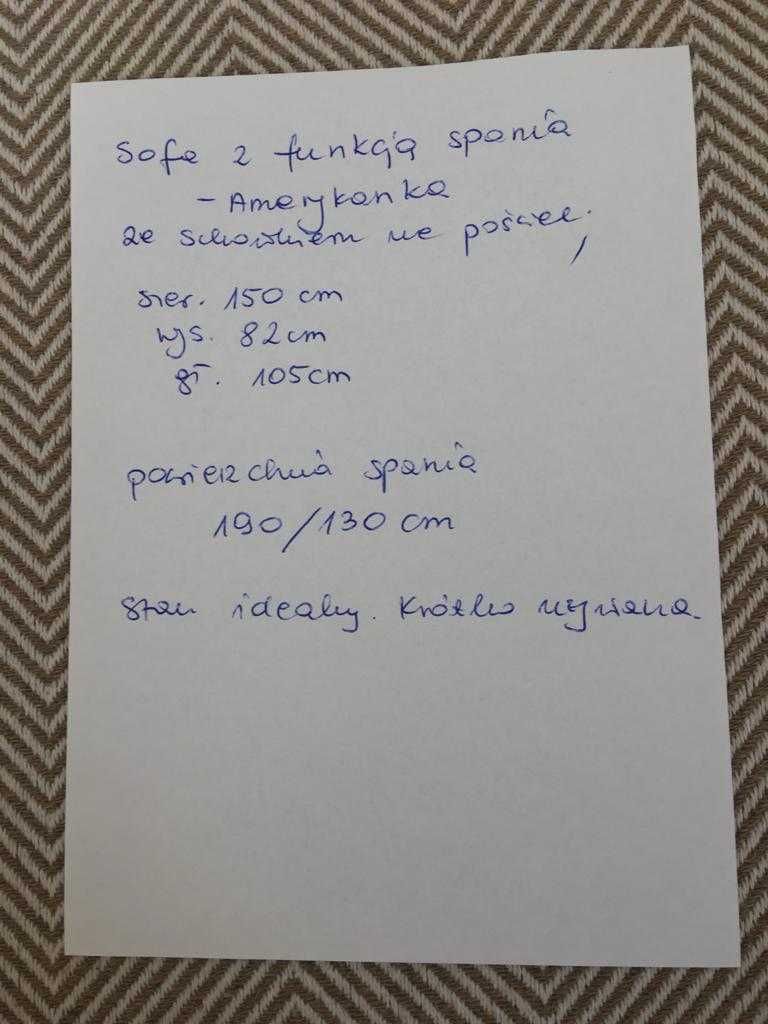 Sofa z funkcją spania
- Amerykanka
ze schowkiem na pościel,
szer. 150 cm
wys. 82cm
gł. 105cm
powierzchnia spania
190/130 cm
Stan idealny. Krótko używana.